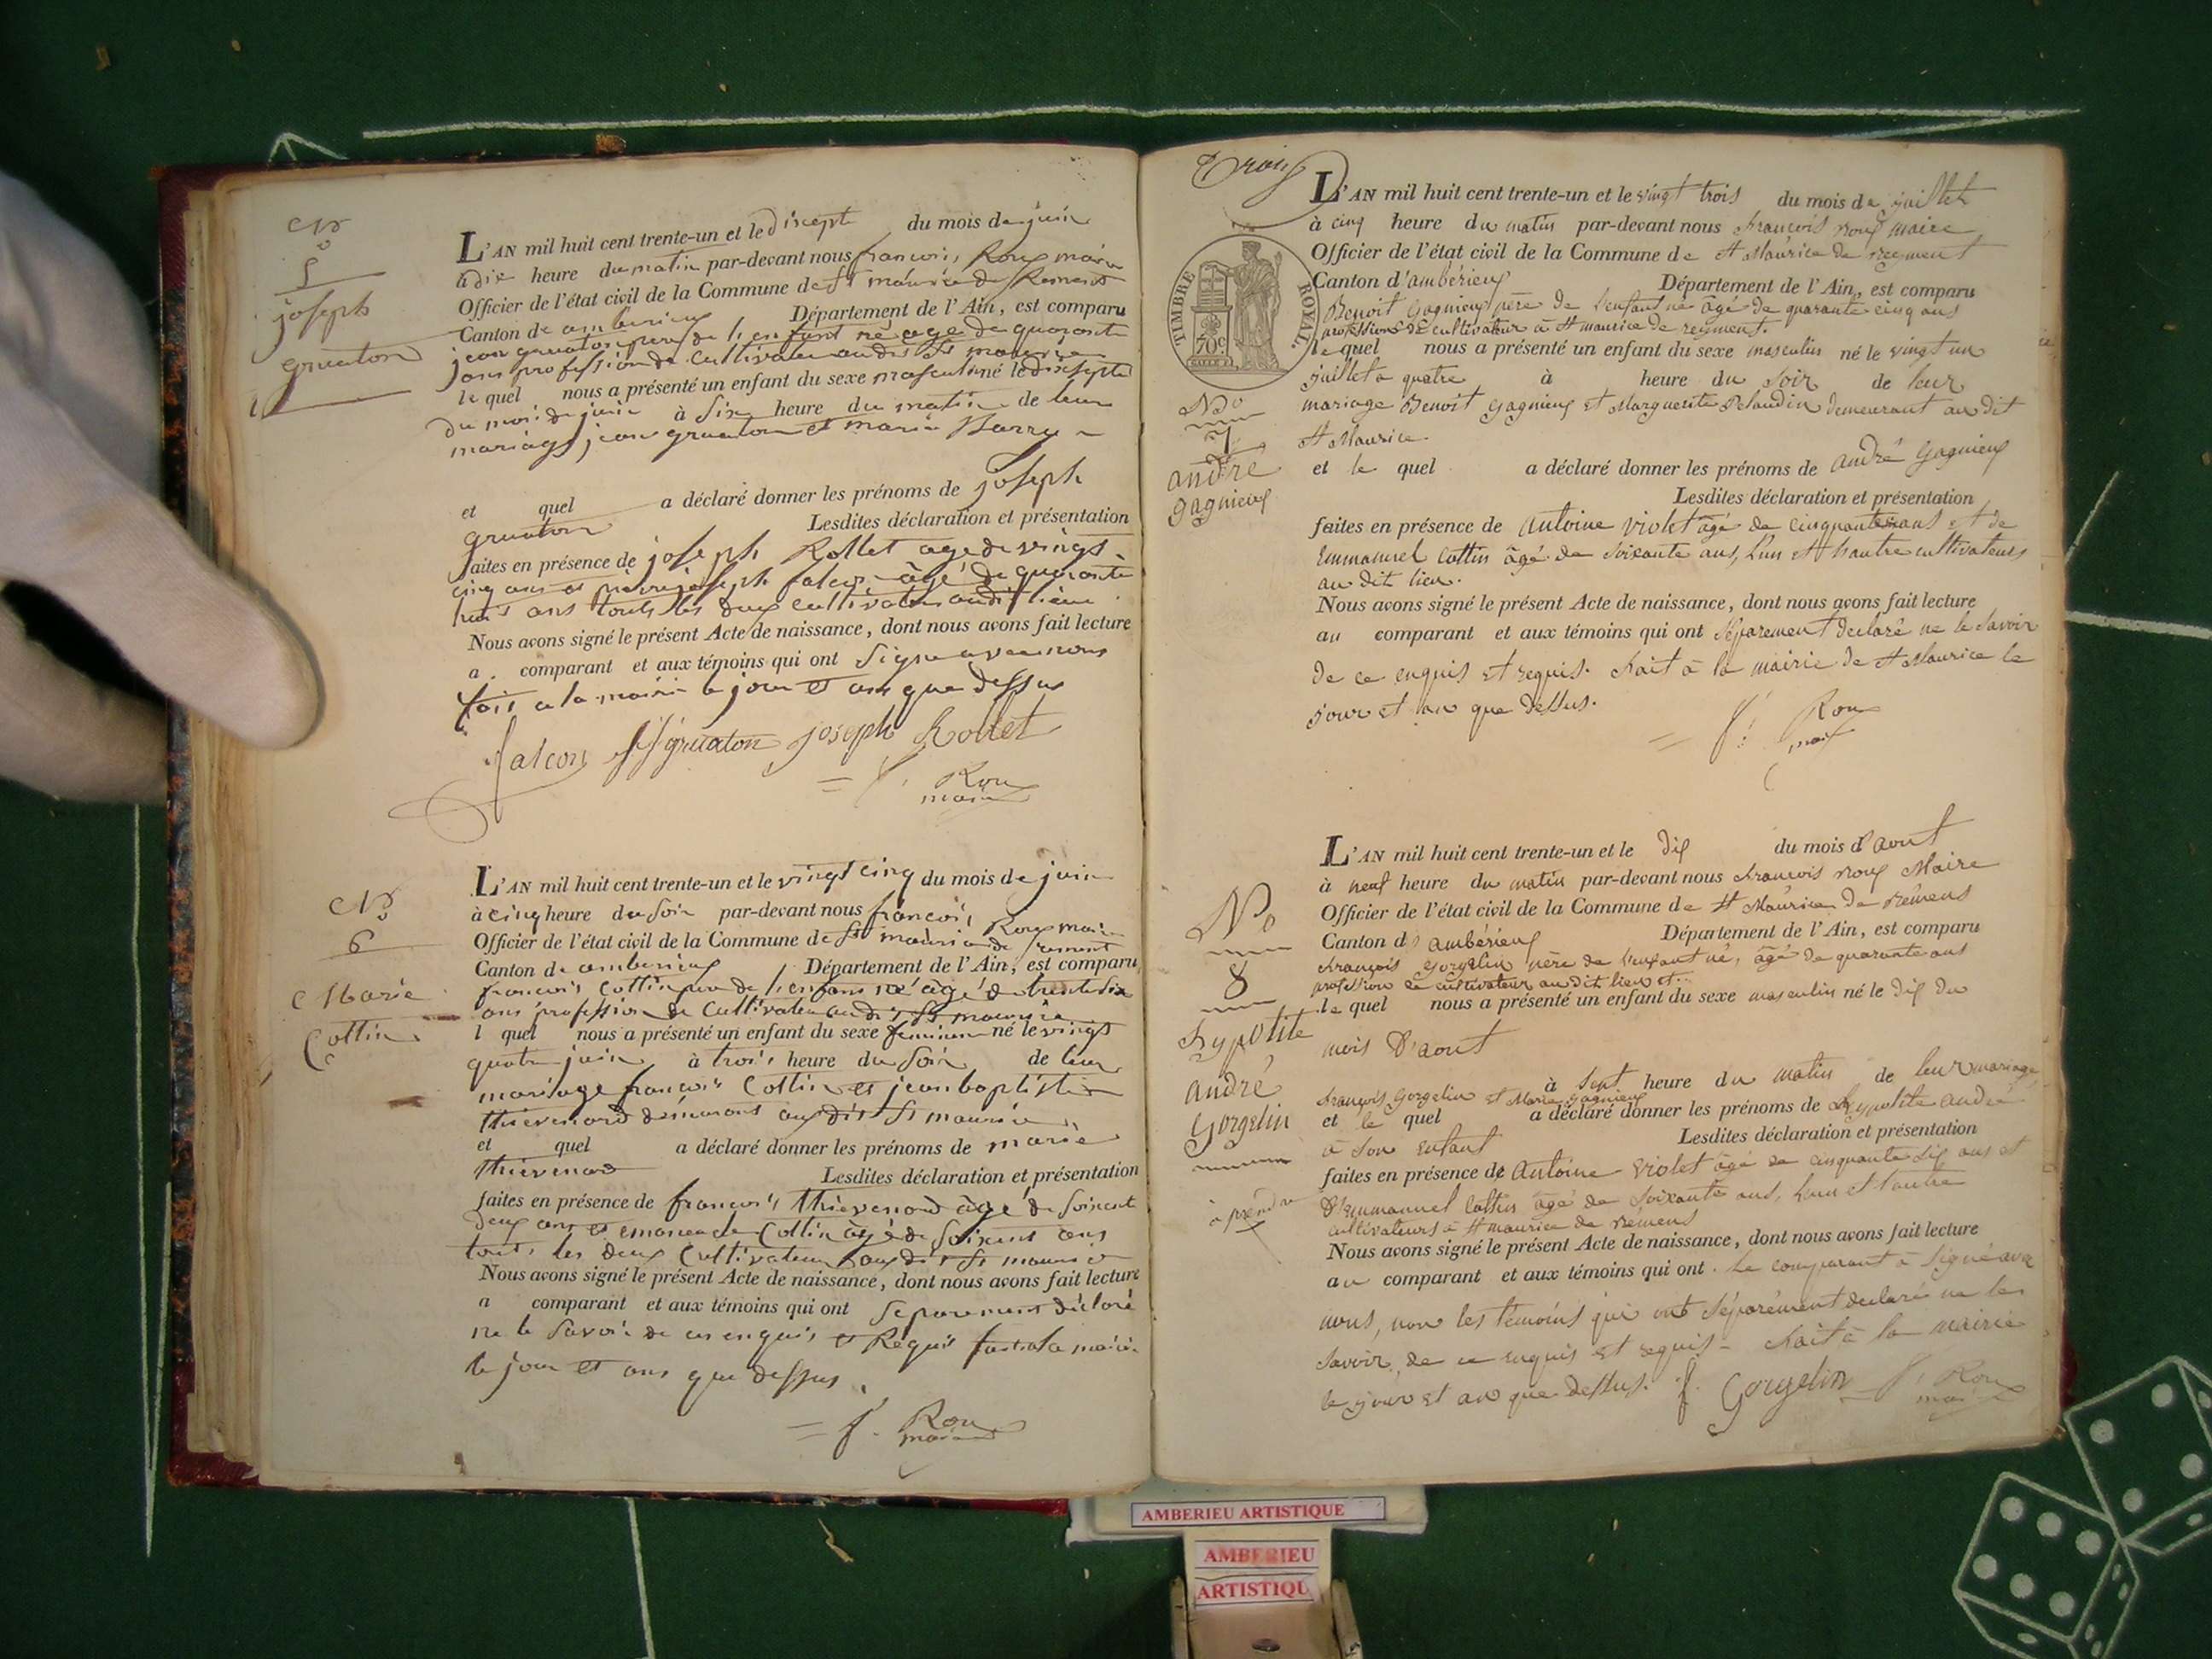 No
5
joseph
gruaton
L'AN mil huit cent trente-un et le disept du mois de juin
à dix heure du matin par-devant nous francois Roux maire
Officier de l'état civil de la Commune de St maurice de Remens
Canton de amberieux Département de l'Ain, est comparu
jean gruaton pere de l'enfant né agé de quarante
ans profession de cultivateur audit St maurice
le quel nous a présenté un enfant du sexe masculin né le disepte
du mois de juin à six heure du matin de leur
mariage jean gruaton et marie
et quel a déclaré donner les prénoms de joseph
gruaton Lesdites déclaration et présentation
faites en présence de joseph Rollet age de vingt
cinq ans et joseph falcoz âgé de quarante
huit ans touts les deux cultivateur audit lieux
Nous avons signé le présent Acte de naissance, dont nous avons fait lecture
a comparant et aux témoins qui ont signe avec nous
fait a la mairie le jour et ans que dessus
falcoz gruaton joseph Rollet
= f. Roux
maire
No
6
Marie
Cottin
L'AN mil huit cent trente-un et le vingt cinq du mois de juin
à cinq heure du soir par-devant nous francois Roux maire
Officier de l'état civil de la Commune de St maurice de Remens
Canton de amberieux Département de l'Ain, est comparu
francois Cottin pere de l'enfant né agé de trente six
ans profession de cultivateur audit St maurice
l quel nous a présenté un enfant du sexe feminin né le vingt
quatre juin à trois heure du soir de leur
mariage francois Cottin et jean baptistine
thievenard demeurant audit St maurice
et quel a déclaré donner les prénoms de marie
thievenard Lesdites déclaration et présentation
faites en présence de francois thievenard âgé de soixente
deux ans et Cottin âgé de soixente ans
touts les deux Cultivateur audit St maurice
Nous avons signé le présent Acte de naissance, dont nous avons fait lecture
a comparant et aux témoins qui ont separement déclaré
ne le savoir de ce enquis et Requis fait a la mairie
le jour et ans que dessus
= f. Roux
maire
Trois
TIMBRE ROYAL
70c
No
7
andré
gagnieux
L'AN mil huit cent trente-un et le vingt trois du mois de juillet
à cinq heure du matin par-devant nous francois roux maire
Officier de l'état civil de la Commune de St Maurice de reyment
Canton d'ambérieux Département de l'Ain, est comparu
Benoit Gagnieux père de l'enfant né âgé de quarante cinq ans
profession de cultivateur à St maurice de reyment.
le quel nous a présenté un enfant du sexe masculin né le vingt un
juillet a quatre à heure du soir de leur
mariage Benoit gagnieux et Marguerite demeurant au dit
St Maurice.
et le quel a déclaré donner les prénoms de andré Gagnieux
Lesdites déclaration et présentation
faites en présence de Antoine violet âgé de ans et de
Emmanuel Cottin âgé de soixante ans, l'un et l'autre cultivateurs
au dit lieu.
Nous avons signé le présent Acte de naissance, dont nous avons fait lecture
au comparant et aux témoins qui ont séparement declaré ne le savoir
de ce enquis et requis. fait à la mairie de St Maurice le
jour et an que dessus.
= f. Roux
maire
No
8
hypolite
andré
Gorgelin
L'AN mil huit cent trente-un et le dix du mois d'aout
à neuf heure du matin par-devant nous francois roux Maire
Officier de l'état civil de la Commune de St Maurice de rémens
Canton d'ambérieux Département de l'Ain, est comparu
françois Gorgelin père de l'enfant né, âgé de quarante ans
profession de cultivateur au dit lieu et
le quel nous a présenté un enfant du sexe masculin né le dix du
mois d'aout
à sept heure du matin de leur mariage
françois Gorgelin et Marie gagnieux
et le quel a déclaré donner les prénoms de hypolite andré
à son enfant Lesdites déclaration et présentation
faites en présence de Antoine violet âgé de cinquante six ans et
d'Emmanuel Cottin âgé de soixante ans, l'un et l'autre
cultivateurs à St maurice de rémens
Nous avons signé le présent Acte de naissance, dont nous avons fait lecture
au comparant et aux témoins qui ont . le comparant a signé avec
nous, non les témoins qui ont séparément declaré ne le
savoir, de ce enquis et requis - fait à la mairie
le jour et an que dessus. f. Gorgelin = f. Roux
maire
AMBERIEU ARTISTIQUE
AMBERIEU
ARTISTIQU